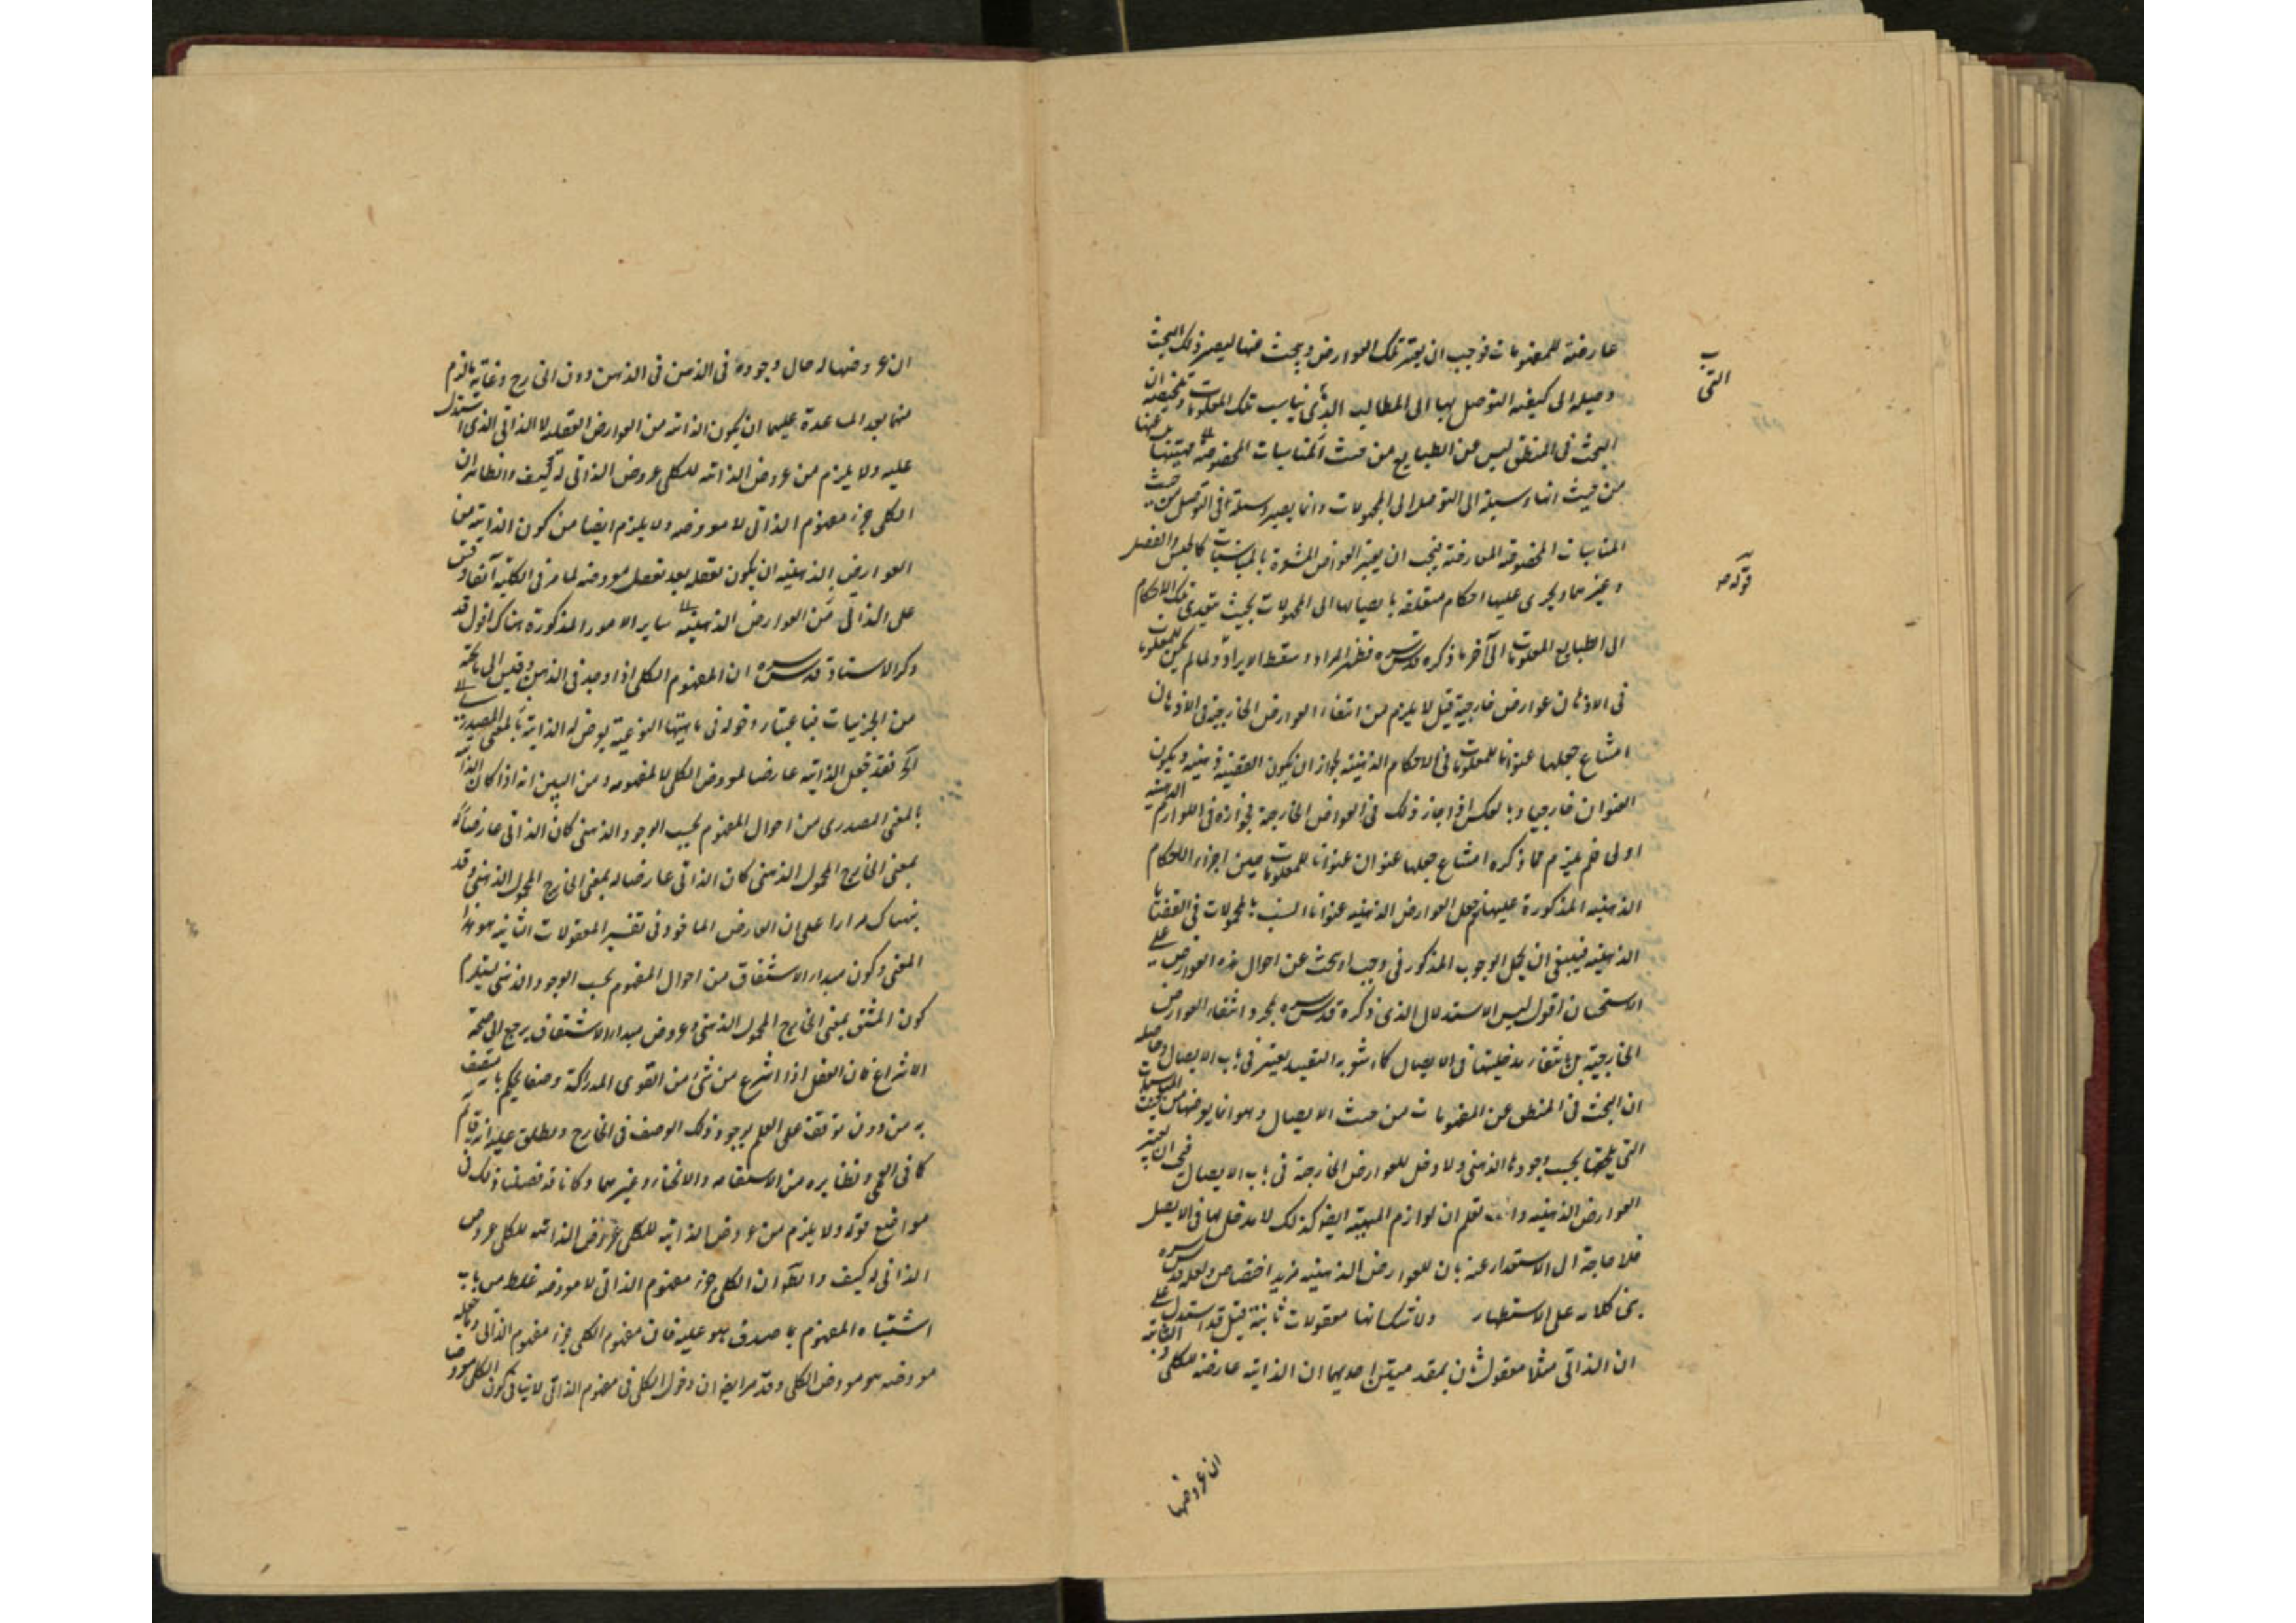 عارضة للمفهومات فوجب ان يعتبر تلك العوارض ويبحث عنها ليصير ذلك البحث
وصيلة الى كيفية التوصل بها الى المطالب الذى يناسب تلك المعلومات وتلخيصه ان
البحث فى المنطق ليس عن الطبايع من حيث
من حيث انها وسيلة الى التوصل الى المجهولات وانما يصير وسيلة فى التوصل من حيث
المناسبات المخصوصة العارضة فيجب ان يعتبر العوارض كالجنس والفصل
وغيرهما ويجرى عليها احكام متعلقة بايصالها الى المجهولات بحيث يتعدى تلك الاحكام
الى الطبايع المعلومات الى آخر ما ذكره قدس سره فظهر المراد وسقط الايراد ولما لم يكن للمعلومات
فى الاذهان عوارض خارجية قيل لا يلزم من انتفاء العوارض الخارجية فى الاذهان
امتناع جعلها عنوانا للمعلومات فى الاحكام الذهنية لجواز ان يكون القضية ذهنية ويكون
العنوان خارجيا وبالعكس اذا جاز ذلك فى العوارض الخارجية فجوازه فى اللوازم الذهنية
اولى فلم يلزم مما ذكره امتناع جعلها عنوان عنوانا للمعلومات حين اجزاء الاحكام
الذهنية المذكورة عليها نعم جعل العوارض الذهنية عنوانا انسب بالمحمولات فى القضايا
الذهنية فينبغى ان يحمل الوجوب المذكور فى وجب او بحث عن احوال هذه العوارض على
الاستحسان اقول ليس الاستدلال الذى ذكره قدس سره بمجرد انتفاء العوارض
الخارجية بل بانتفاء مدخليتها فى الايصال كما يشعر به التقييد بعتبر فى باب الايصال وحاصله
ان البحث فى المنطق عن المفهومات من حيث الايصال وهو انما يعرضها من حيث
التى يلحقها بحسب وجودها الذهنى ولا دخل للعوارض الخارجة فى باب الايصال فيجب ان يعتبر
العوارض الذهنية وانت تعلم ان لوازم المهية ايضا كذلك لا مدخل لها فى الايصال
فلا حاجة الى الاعتذار عنه بان للعوارض الذهنية مزيد اختصاص ولعله قدس سره
بنى كلامه على الاستظهار ولا شك انها معقولات ثانية قيل قد استدل على
ان الذاتى مثلا معقول ثان بمقدمتين احديهما ان الذاتية عارضة للكلى والثانية
ان عروضها
التى
قوله
ان عروضها له حال وجوده فى الذهن فى الذهن دون الخارج وغاية ما لزم
منهما بعد المساعدة عليهما ان يكون الذاتية من العوارض العقلية لا الذاتى الذى استدل
عليه ولا يلزم من عروض الذاتية للكلى عروض الذاتى له كيف والظاهر ان
الكلى جزء مفهوم الذاتى لا معروضه ولا يلزم ايضا من كون الذاتية من
العوارض الذهنية ان يكون تعقله بعد تعقل معروضه لما مر فى الكلية آنفا وقس
على الذاتى من العوارض الذهنية ساير الامور المذكورة هناك اقول قد
ذكر الاستاد قدس سره ان المفهوم الكلى اذا وجد فى الذهن وقيس الى ما تحته
من الجزئيات فباعتبار دخوله فى ماهيتها النوعية يعرض له الذاتية بالمعنى المصدرى
الخ فقد جعل الذاتية عارضا لمعروض الكلى لا لمفهومه ومن البين انه اذا كان الذاتية
بالمعنى المصدرى من احوال المفهوم بحسب الوجود الذهنى كان الذاتى عارضا له
بمعنى الخارج المحمول الذهنى كان الذاتى عارضا له بمعنى الخارج المحمول الذهنى وقد
نبهناك مرارا على ان العارض الماخوذ فى تفسير المعقولات الثانية هو هذا
المعنى وكون مبدء الاشتقاق من احوال المفهوم بحسب الوجود الذهنى يستلزم
كون المشتق بمعنى الخارج المحمول الذهنى وعروض مبدء الاشتقاق يرجع الى صحة
الانتزاع فان العقل اذا انتزع من شئ من القوى المدركة وصفا يحكم
به من دون توقف على العلم بوجود ذلك الوصف فى الخارج ويطلق عليه انه قائم
كما فى العمى ونظايره من الاستقامة والانحناء وغيرهما وكنا قد فصلنا ذلك فى
مواضع قوله ولا يلزم من عروض الذاتية للكلى عروض الذاتية للكلى عروض
الذاتى له كيف والظ ان الكلى جزء مفهوم الذاتى لا معروضه غلط من باب
اشتباه المفهوم بما صدق هو عليه فان مفهوم الكلى جزء مفهوم الذاتى وما جعله
معروضه هو معروض الكلى وقد مر ايضا ان دخول الكلى فى مفهوم الذاتى لا ينافى كون الكلى معروضا